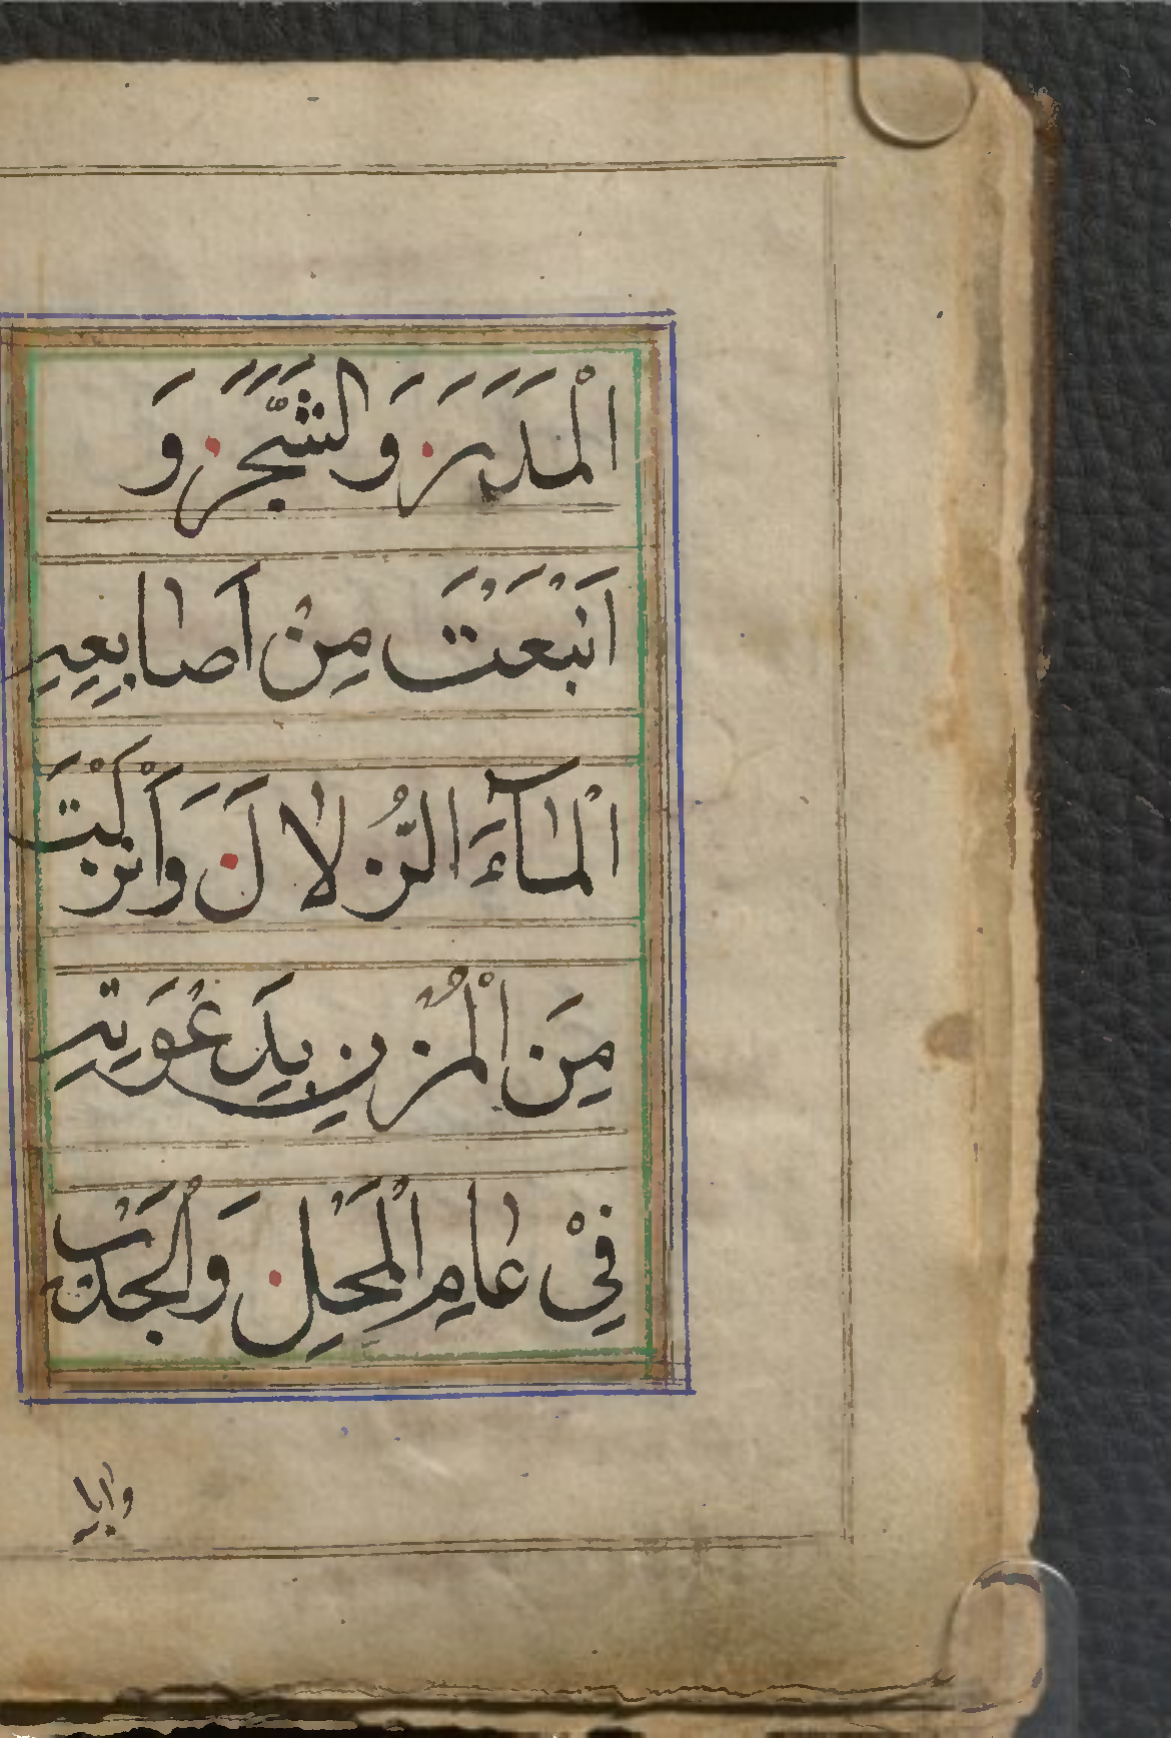 اَلْمَدَرَ وَالشَّجَرَ وَ
اَنْبَعْتَ مِنْ اَصَابِعِهِ
الْمَآءَ الزُّلَالَ وَاَنْزَلْتَ
مِنَ الْمُزْنِ بِدَعْوَتِهِ
فِيْ عَامِ الْمَحْلِ وَالْجَدْبِ
وابل